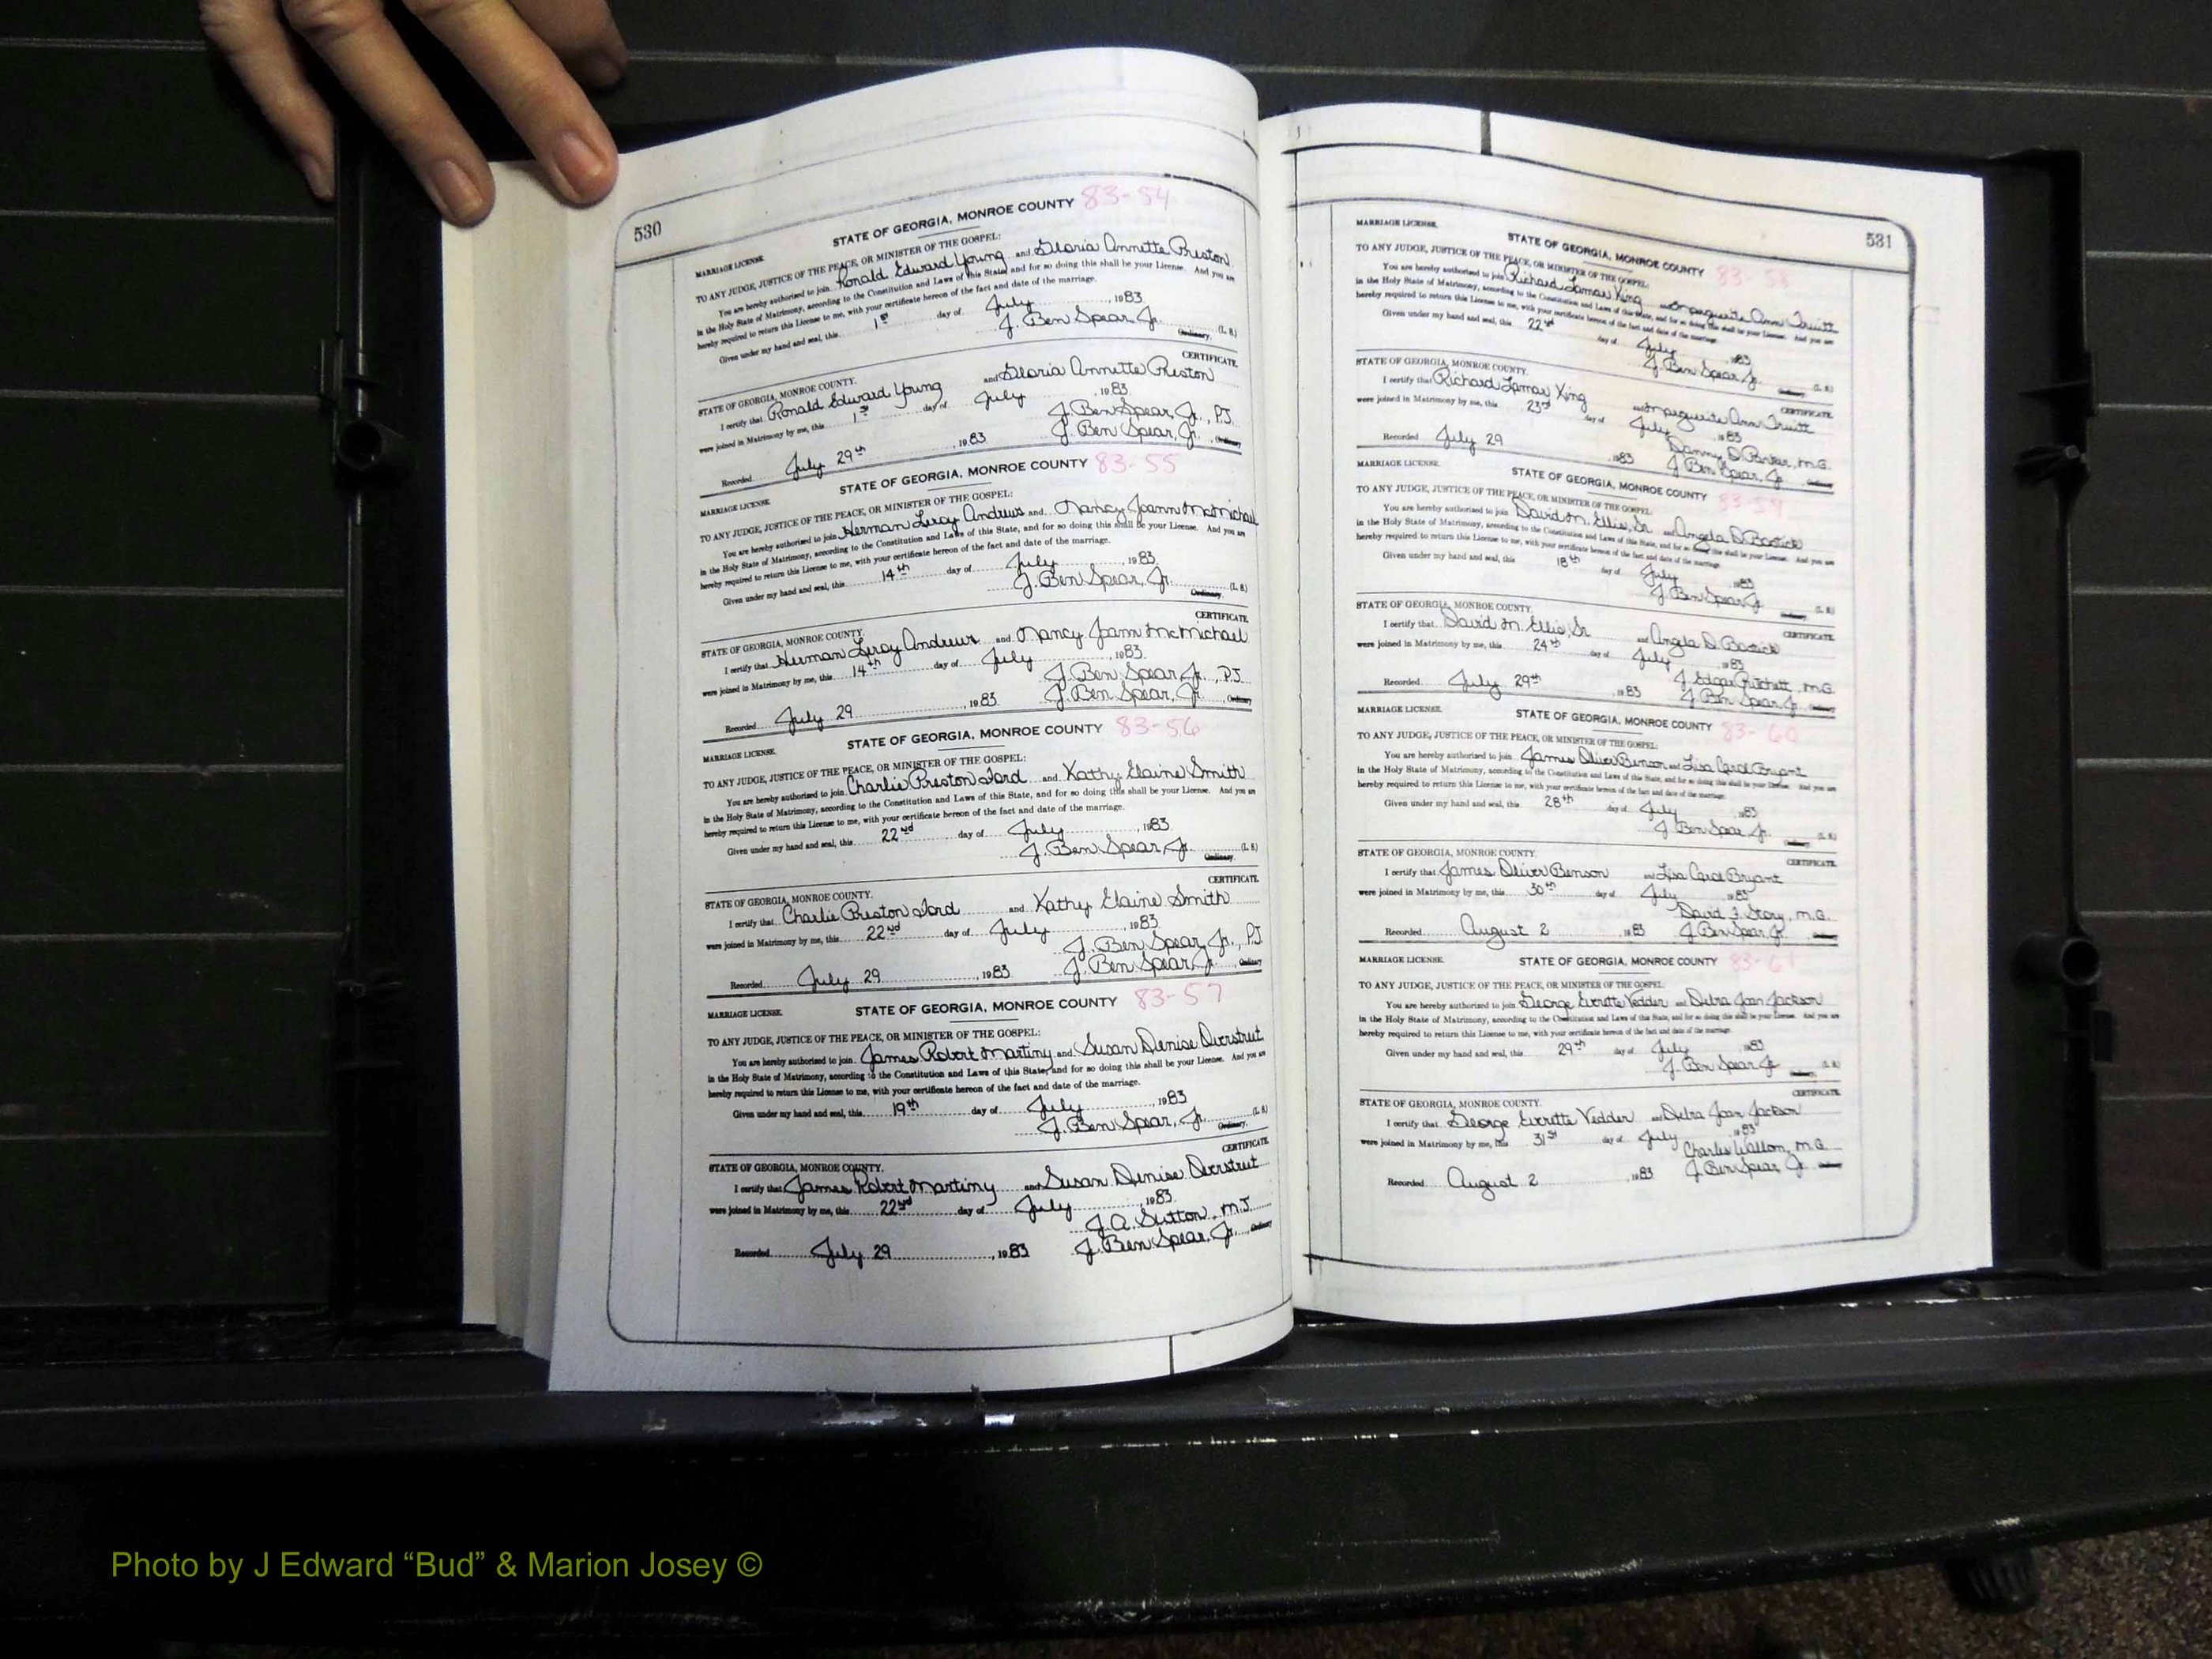 530
STATE OF GEORGIA, MONROE COUNTY 83-54
MARRIAGE LICENSE.
TO ANY JUDGE, JUSTICE OF THE PEACE, OR MINISTER OF THE GOSPEL:
You are hereby authorized to join Ronald Edward Young and Gloria Annette Preston
in the Holy State of Matrimony, according to the Constitution and Laws of this State, and for so doing this shall be your License. And you are
hereby required to return this License to me, with your certificate hereon of the fact and date of the marriage.
Given under my hand and seal, this 1st day of July, 1983
J. Ben Spear, Jr. (L. S.)
Ordinary.
CERTIFICATE.
STATE OF GEORGIA, MONROE COUNTY.
I certify that Ronald Edward Young and Gloria Annette Preston
were joined in Matrimony by me, this 1st day of July, 1983
J. Ben Spear, Jr., P.J.
Recorded July 29th, 1983 J. Ben Spear, Jr., Ordinary
STATE OF GEORGIA, MONROE COUNTY 83-55
MARRIAGE LICENSE.
TO ANY JUDGE, JUSTICE OF THE PEACE, OR MINISTER OF THE GOSPEL:
You are hereby authorized to join Herman Leroy Andrews and Nancy Joann McMichael
in the Holy State of Matrimony, according to the Constitution and Laws of this State, and for so doing this shall be your License. And you are
hereby required to return this License to me, with your certificate hereon of the fact and date of the marriage.
Given under my hand and seal, this 14th day of July, 1983
J. Ben Spear, Jr. (L. S.)
Ordinary.
CERTIFICATE.
STATE OF GEORGIA, MONROE COUNTY.
I certify that Herman Leroy Andrews and Nancy Joann McMichael
were joined in Matrimony by me, this 14th day of July, 1983
J. Ben Spear, Jr., P.J.
Recorded July 29, 1983 J. Ben Spear, Jr., Ordinary
STATE OF GEORGIA, MONROE COUNTY 83-56
MARRIAGE LICENSE.
TO ANY JUDGE, JUSTICE OF THE PEACE, OR MINISTER OF THE GOSPEL:
You are hereby authorized to join Charlie Preston Ford and Kathy Elaine Smith
in the Holy State of Matrimony, according to the Constitution and Laws of this State, and for so doing this shall be your License. And you are
hereby required to return this License to me, with your certificate hereon of the fact and date of the marriage.
Given under my hand and seal, this 22nd day of July, 1983
J. Ben Spear, Jr. (L. S.)
Ordinary.
CERTIFICATE.
STATE OF GEORGIA, MONROE COUNTY.
I certify that Charlie Preston Ford and Kathy Elaine Smith
were joined in Matrimony by me, this 22nd day of July, 1983
J. Ben Spear, Jr., P.J.
Recorded July 29, 1983 J. Ben Spear, Jr., Ordinary
STATE OF GEORGIA, MONROE COUNTY 83-57
MARRIAGE LICENSE.
TO ANY JUDGE, JUSTICE OF THE PEACE, OR MINISTER OF THE GOSPEL:
You are hereby authorized to join James Robert Martiny and Susan Denise Overstreet
in the Holy State of Matrimony, according to the Constitution and Laws of this State, and for so doing this shall be your License. And you are
hereby required to return this License to me, with your certificate hereon of the fact and date of the marriage.
Given under my hand and seal, this 19th day of July, 1983
J. Ben Spear, Jr. (L. S.)
Ordinary.
CERTIFICATE.
STATE OF GEORGIA, MONROE COUNTY.
I certify that James Robert Martiny and Susan Denise Overstreet
were joined in Matrimony by me, this 22nd day of July, 1983
J. A. Sutton, M.J.
Recorded July 29, 1983 J. Ben Spear, Jr., Ordinary
531
MARRIAGE LICENSE. STATE OF GEORGIA, MONROE COUNTY 83-58
TO ANY JUDGE, JUSTICE OF THE PEACE, OR MINISTER OF THE GOSPEL:
You are hereby authorized to join Richard Lamar King and Marguerite Ann Truitt
in the Holy State of Matrimony, according to the Constitution and Laws of this State, and for so doing this shall be your License. And you are
hereby required to return this License to me, with your certificate hereon of the fact and date of the marriage.
Given under my hand and seal, this 22nd day of July, 1983
J. Ben Spear, Jr. (L. S.)
Ordinary.
CERTIFICATE.
STATE OF GEORGIA, MONROE COUNTY.
I certify that Richard Lamar King and Marguerite Ann Truitt
were joined in Matrimony by me, this 23rd day of July, 1983
Danny D. Parker, M.G.
Recorded July 29, 1983 J. Ben Spear, Jr., Ordinary
MARRIAGE LICENSE. STATE OF GEORGIA, MONROE COUNTY 83-59
TO ANY JUDGE, JUSTICE OF THE PEACE, OR MINISTER OF THE GOSPEL:
You are hereby authorized to join David M. Ellis, Sr. and Angela D. Bostick
in the Holy State of Matrimony, according to the Constitution and Laws of this State, and for so doing this shall be your License. And you are
hereby required to return this License to me, with your certificate hereon of the fact and date of the marriage.
Given under my hand and seal, this 18th day of July, 1983
J. Ben Spear, Jr. (L. S.)
Ordinary.
CERTIFICATE.
STATE OF GEORGIA, MONROE COUNTY.
I certify that David M. Ellis, Sr. and Angela D. Bostick
were joined in Matrimony by me, this 24th day of July, 1983
J. Edgar Pritchett, M.G.
Recorded July 29th, 1983 J. Ben Spear, Jr., Ordinary
MARRIAGE LICENSE. STATE OF GEORGIA, MONROE COUNTY 83-60
TO ANY JUDGE, JUSTICE OF THE PEACE, OR MINISTER OF THE GOSPEL:
You are hereby authorized to join James Oliver Benson and Lisa Carol Bryant
in the Holy State of Matrimony, according to the Constitution and Laws of this State, and for so doing this shall be your License. And you are
hereby required to return this License to me, with your certificate hereon of the fact and date of the marriage.
Given under my hand and seal, this 28th day of July, 1983
J. Ben Spear, Jr. (L. S.)
Ordinary.
CERTIFICATE.
STATE OF GEORGIA, MONROE COUNTY.
I certify that James Oliver Benson and Lisa Carol Bryant
were joined in Matrimony by me, this 30th day of July, 1983
David F. Story, M.G.
Recorded August 2, 1983 J. Ben Spear, Jr., Ordinary
MARRIAGE LICENSE. STATE OF GEORGIA, MONROE COUNTY 83-61
TO ANY JUDGE, JUSTICE OF THE PEACE, OR MINISTER OF THE GOSPEL:
You are hereby authorized to join George Everette Vedder and Debra Joan Jackson
in the Holy State of Matrimony, according to the Constitution and Laws of this State, and for so doing this shall be your License. And you are
hereby required to return this License to me, with your certificate hereon of the fact and date of the marriage.
Given under my hand and seal, this 29th day of July, 1983
J. Ben Spear, Jr. (L. S.)
Ordinary.
CERTIFICATE.
STATE OF GEORGIA, MONROE COUNTY.
I certify that George Everette Vedder and Debra Joan Jackson
were joined in Matrimony by me, this 31st day of July, 1983
Charles M.G.
Recorded August 2, 1983 J. Ben Spear, Jr., Ordinary
Photo by J Edward “Bud” & Marion Josey ©